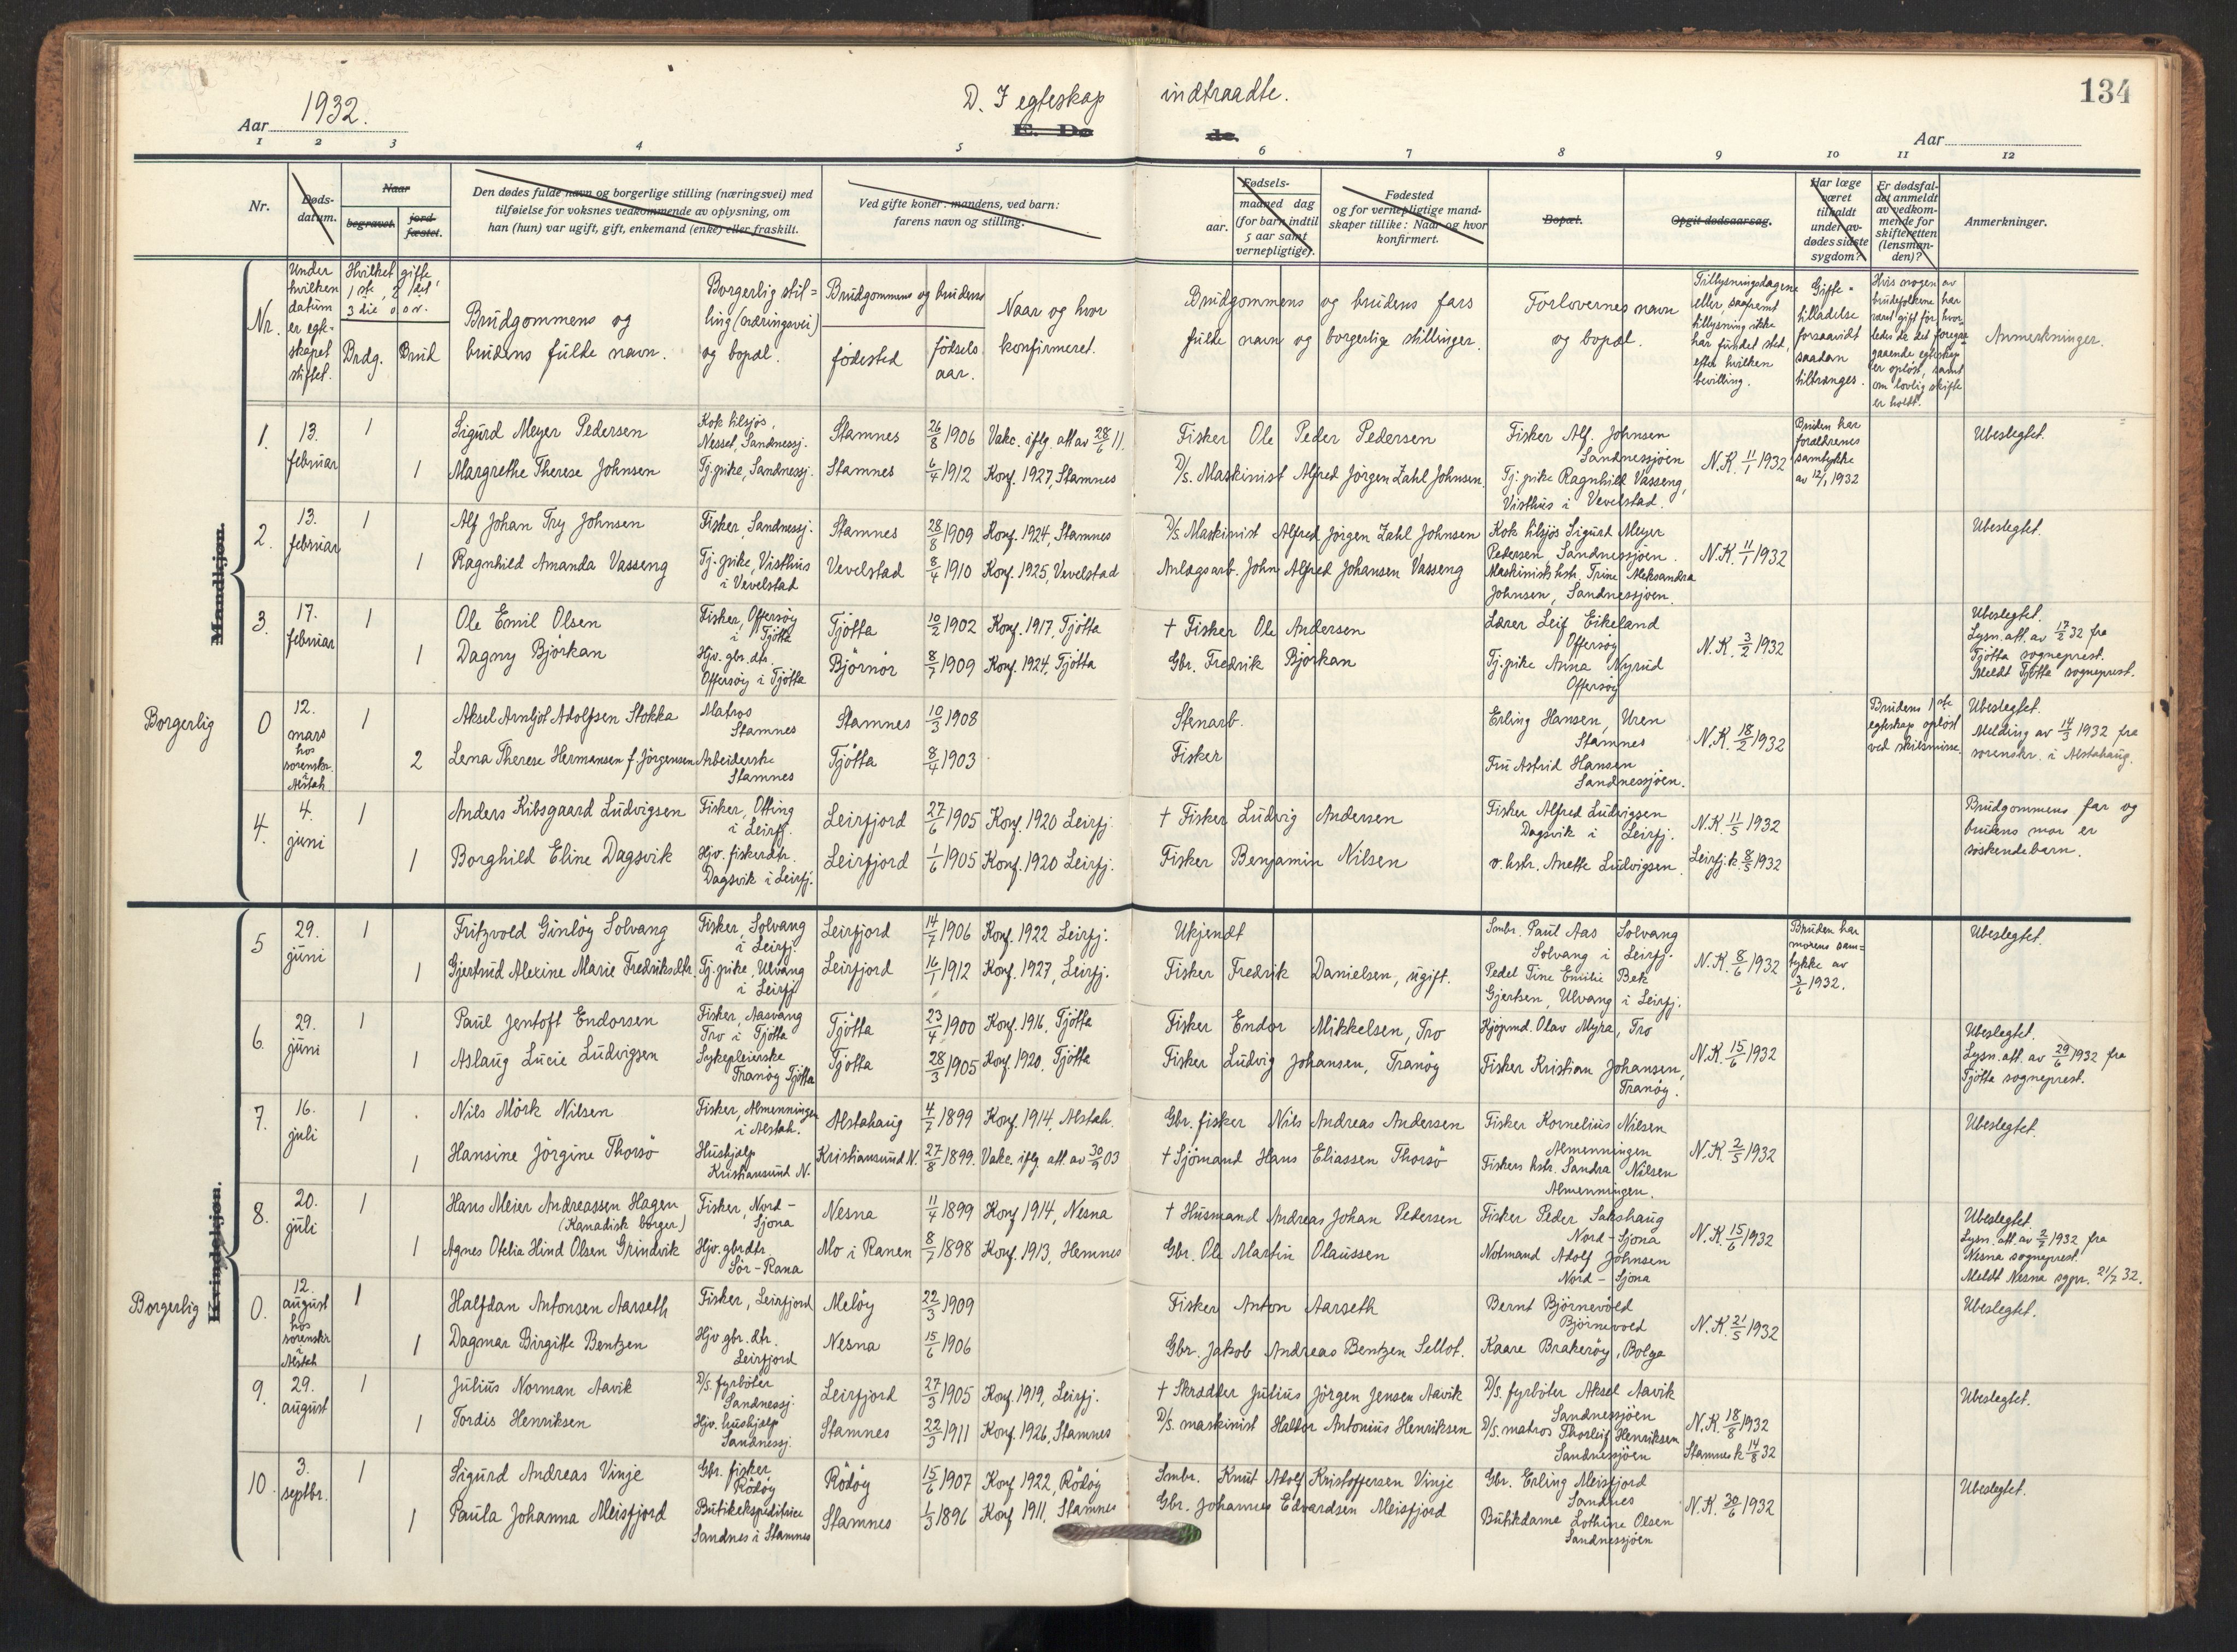 1932.
D. I egteskap indtraadte.
134
Aar
E. Dø de.
Aar
1 2 3 4 5 6 7 8 9 10 11 12
Nr.
Døds-
datum.
Naar
begravet.
jord-
fæstet.
Den dødes fulde navn og borgerlige stilling (næringsvei) med
tilføielse for voksnes vedkommende av oplysning, om
han (hun) var ugift, gift, enkemand (enke) eller fraskilt.
Ved gifte koner: mandens, ved barn:
farens navn og stilling.
Fødsels-
aar.
maaned dag
(for barn indtil
5 aar samt
vernepligtige).
Fødested
og for vernepligtige mand-
skaper tillike: Naar og hvor
konfirmert.
Bopæl.
Opgit dødsaarsag.
Har læge
været
tilkaldt
under av-
dødes sidste
sygdom?
Er dødsfal-
det anmeldt
av vedkom-
mende for
skifteretten
(lensman-
den)?
Anmerkninger.
Nr.
Under
hvilken
datum
er egte-
skapet
stiftet.
Hvilket gifte
1ste, 2det,
3die o.s.v.
Brdg. Brud
Brudgommens og
brudens fulde navn.
Borgerlig stil=
ling (næringsvei)
og bopæl.
Brudgommens og brudens
fødested
fødsels
aar.
Naar og hvor
konfirmeret.
Brudgommens og brudens fars
fulde navn og borgerlige stillinger.
Forlovernes navn
og bopæl.
Tillysningsdagene
eller, saafremt
tillysning ikke
har fundet sted,
efter hvilken
bevilling.
Gifte-
tilladelse
forsaavidt
saadan
tiltrænges.
Hvis nogen av
brudefolkene har
været gift før, hvor-
ledes de det foregaa-
gaaende egteskap
er opløst, samt
om lovlig skifte
er holdt.
Anmerkninger.
Mandkjøn.
1. 13. februar
1 Sigurd Meyer Pedersen
Kok tilsjøs,
Nesset, Sandnessj.
Stamnes 26/8 1906 Vakc. iflg. att av 28/6 11.
Fisker Ole Peder Pedersen
Fisker Alf. Johnsen
Sandnessjøen
N.K. 11/1 1932
Bruden har
forældrenes
samtykke
av 12/1 1932
Ubeslegtet.
1 Margrethe Therese Johnsen
Tj.pike, Sandnessj.
Stamnes 6/4 1912 Konf. 1927, Stamnes
D/s. Maskinist Alfred Jørgen Zahl Johnsen.
Tj. pike Ragnhild Vasseng,
Visthus i Vevelstad.
2. 13. februar
1 Alf Johan Try Johnsen
Fisker, Sandnessj.
Stamnes 28/8 1909 Konf. 1924, Stamnes
D/s. Maskinist Alfred Jørgen Zahl Johnsen
Kok tilsjøs Sigurd Meyer
Pedersen, Sandnessjøen.
N.K. 11/1 1932
Ubeslegtet.
1 Ragnhild Amanda Vasseng
Tj. pike, Visthus
i Vevelstad
Vevelstad 8/4 1910 Konf. 1925, Vevelstad
Anlægsarb. John Alfred Johansen Vasseng
Maskinists hstr. Trine Aleksandra
Johnsen, Sandnessjøen.
3. 17. februar
1 Ole Emil Olsen
Fisker, Offersøy
i Tjøtta
Tjøtta 10/2 1902 Konf. 1917, Tjøtta
† Fisker Ole Andersen
Lærer Leif Eikeland
Offersøy
N.K. 3/2 1932
Ubeslegtet.
Lysn. att. av 17/2 32 fra
Tjøtta sogneprest.
Meldt Tjøtta sogneprest.
1 Dagny Bjørkan
Hjv. gbr. dtr.
Offersøy i Tjøtta
Bjørnør 8/7 1909 Konf. 1924, Tjøtta
Gbr. Fredrik Bjørkan
Tj. pike Anna Nyrud
Offersøy
Borgerlig
0 12. mars
hos
sorenskr.
i
Alstah.
1 Aksel Arnljot Adolfsen Stokka
Matros
Stamnes
Stamnes 10/3 1908
Stenarb.
Erling Hansen, Uren
Stamnes
N.K. 18/2 1932
Brudens 1ste
egteskap opløst
ved skilsmisse.
Ubeslegtet.
Melding av 14/3 1932 fra
sorenskr. i Alstahaug.
2 Lena Therese Hermansen f. Jørgensen
Arbeiderske
Stamnes
Tjøtta 8/4 1903
Fisker
Fru Astrid Hansen
Sandnessjøen.
4. 4. juni
1 Anders Kibsgaard Ludvigsen
Fisker, Otting
i Leirfj.
Leirfjord 27/6 1905 Konf. 1920 Leirfj.
† Fisker Ludvig Andersen
Fisker Alfred Ludvigsen
Dagsvik i Leirfj.
N.K. 11/5 1932
Brudgommens far og
brudens mor er
søskendebarn.
1 Borghild Eline Dagsvik
Hjv. fiskerdtr.
Dagsvik i Leirfj.
Leirfjord 1/6 1905 Konf. 1920 Leirfj.
Fisker Benjamin Nilsen
o. hstr. Anette Ludvigsen.
Leirfj. k. 8/5 1932
Kvindekjøn.
5 29. juni
1 Fritzvold Ginløy Solvang
Fisker, Solvang
i Leirfj.
Leirfjord 14/7 1906 Konf. 1922 Leirfj.
Ukjendt
Smbr. Paul Aas Solvang
Solvang i Leirfj.
N.K. 8/6 1932
Bruden har
morens sam=
tykke av
3/6 1932.
Ubeslegtet.
1 Gjertrud Alexine Marie Fredriksdtr.
Tj. pike, Ulvang
i Leirfj
Leirfjord 16/1 1912 Konf. 1927, Leirfj.
Fisker Fredrik Danielsen, ugift.
Pedel Tine Emilie Bek
Gjertsen, Ulvang i Leirfj.
6. 29. juni
1 Paul Jentoft Endorsen
Fisker, Aasvang
Tro i Tjøtta
Tjøtta 23/4 1900 Konf. 1916, Tjøtta
Fisker Endor Mikkelsen, Tro
Kjøpmd. Olav Myra, Tro
N.K. 15/6 1932
Ubeslegtet.
Lysn. att. av 29/6 1932 fra
Tjøtta sogneprest.
1 Aslaug Lucie Ludvigsen
Sykepleierske
Tranøy Tjøtta
Tjøtta 28/3 1905 Konf. 1920. Tjøtta
Fisker Ludvig Johansen, Tranøy
Fisker Kristian Johansen,
Tranøy.
7. 16. juli
1 Nils Mørk Nilsen
Fisker, Almenningen
i Alstah.
Alstahaug 4/7 1899 Konf. 1914, Alstah.
Gbr. fisker Nils Andreas Andersen
Fisker Kornelius Nilsen
Almenningen
N.K. 2/5 1932
Ubeslegtet.
1 Hansine Jørgine Thorsø
Hushjelp
Kristiansund N.
Kristiansund N. 27/8 1899. Vakc. iflg. att. av 30/9 03
† Sjømand Hans Eliassen Thorsø
Fiskers hstr. Sandra Nilsen
Almenningen.
8. 20. juli
1 Hans Meier Andreassen Hagen
(Kanadisk borger)
Fisker, Nord-
Sjona
Nesna 11/4 1899 Konf 1914, Nesna
† Husmand Andreas Johan Pedersen
Fisker Peder Sakshaug
Nord-Sjona
N.K. 15/6 1932
Ubeslegtet.
Lysn. att. av 2/7 1932 fra
Nesna sogneprest.
Meldt Nesna sgpr. 21/7 32.
1 Agnes Otelia Hind Olsen Grindvik
Hjv. gbrdtr.
Sør-Rana
Mo i Ranen 8/7 1898 Konf. 1913, Hemnes
Gbr. Ole Martin Olaussen
Notmand Adolf Johnsen
Nord-Sjona
Borgerlig
0. 12. august
hos
sorenskr
i
Alstah
1 Halfdan Antonsen Aarseth
Fisker, Leirfjord
Meløy 22/3 1909
Fisker Anton Aarseth
Bernt Bjørnevold
Bjørnevold
N.K. 21/5 1932
Ubeslegtet.
1 Dagmar Birgitte Bentzen
Hjv. gbr. dtr.
Leirfjord
Nesna 15/6 1906
Gbr. Jakob Andreas Bentzen Sellot.
Kaare Brakerøy, Bolga
9. 29. august
1 Julius Norman Aavik
D/s. fyrbøter
Sandnessj.
Leirfjord 27/3 1905 Konf. 1919, Leirfj.
† Skrædder Julius Jørgen Jensen Aavik
D/s. fyrbøter Aksel Aavik
Sandnessjøen
N.K. 18/8 1932
Ubeslegtet.
1 Tordis Henriksen
Hjv. hushjelp
Sandnessj.
Stamnes 22/3 1911 Konf. 1926, Stamnes
D/s. maskinist Haldor Antonius Henriksen
D/s. matros Thorleif Henriksen
Sandnessjøen
Stamnes k 14/8 32
10. 3. septbr.
1 Sigurd Andreas Vinje
Gbr. fisker
Rødøy
Rødøy 15/6 1907 Konf. 1922, Rødøy
Smbr. Knut Adolf Kristoffersen Vinje
Gbr. Erling Meisfjord
Sandnes
N.K. 30/6 1932
Ubeslegtet.
1 Paula Johanna Meisfjord
Butikekspeditrice
Sandnes i Stamnes
Stamnes 1/3 1896 Konf 1911, Stamnes
Gbr. Johannes Edvardsen Meisfjord
Butikdame Lothine Olsen
Sandnessjøen